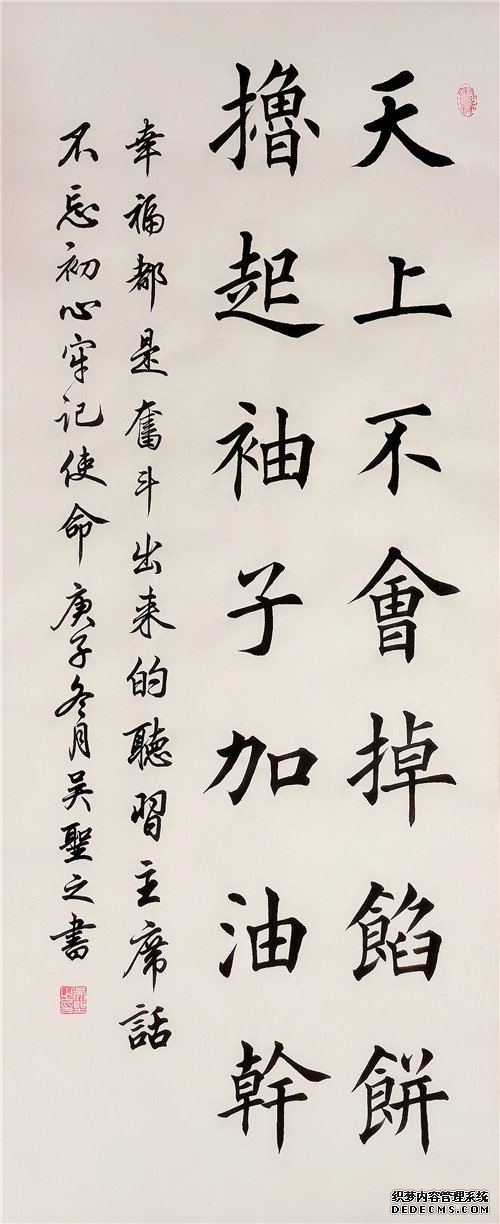 天上不會掉餡餅
擼起袖子加油幹
幸福都是奮斗出来的聽習主席話
不忘初心牢记使命庚子冬月吴聖之書
织梦内容管理系统
DEDECMS.COM